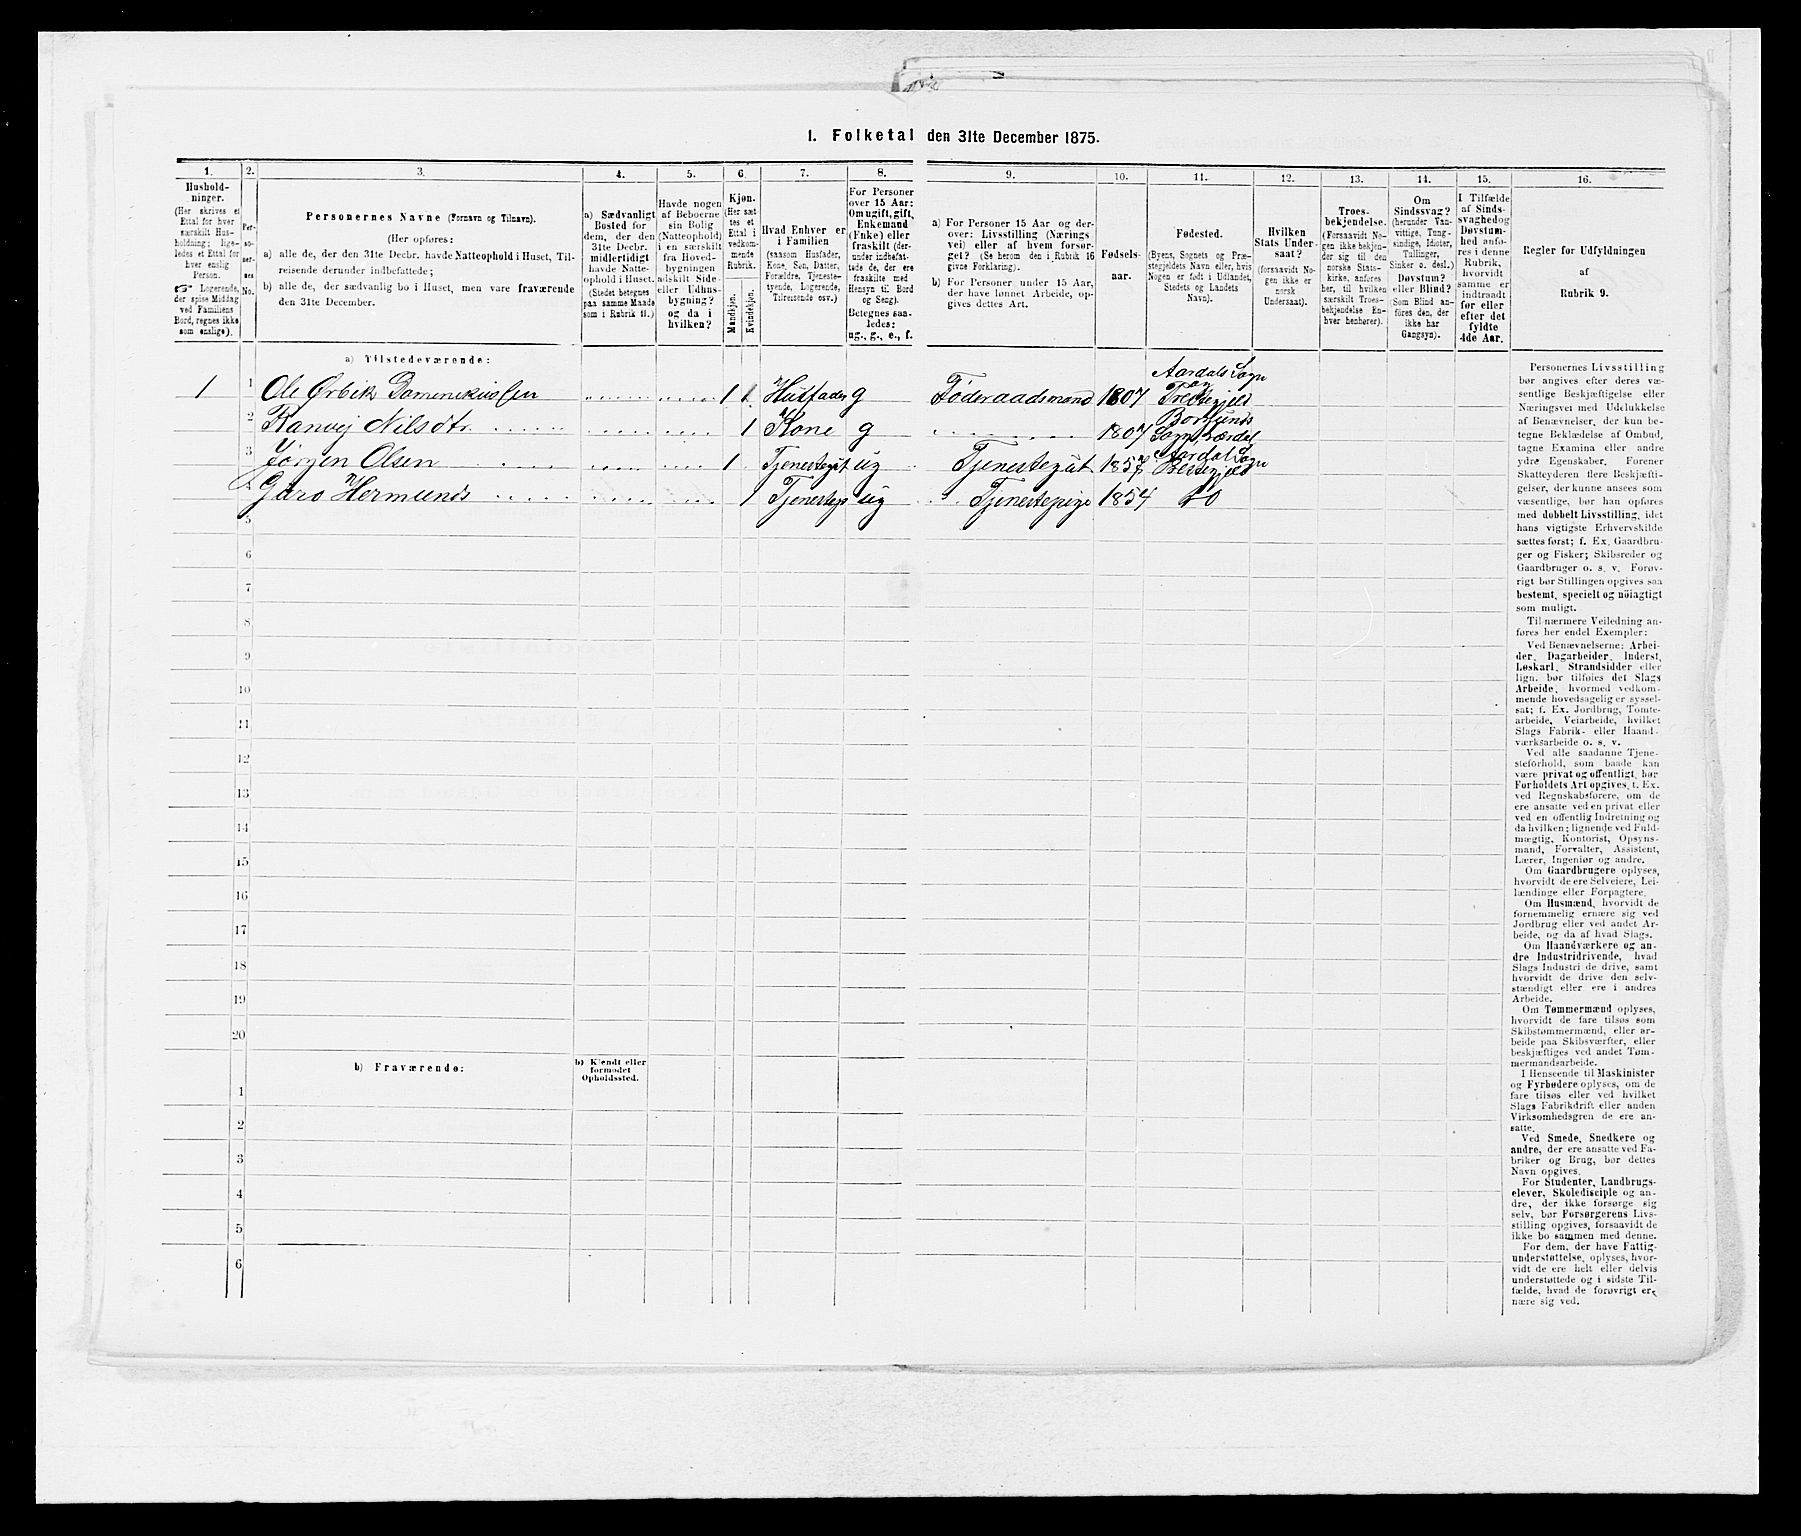 1. Folketal den 31te December 1875.
1. 2. 3. 4. 5. 6. 7. 8. 9. 10. 11. 12. 13. 14. 15. 16.
Hushold-
ninger.
(Her skrives et
Ettal for hver
særskilt Hus-
holdning; lige-
ledes et Ettal for
hver enslig
Person.
☞ Logerende,
der spise Middag
ved Familiens
Bord, regnes ikke
som enslige).
Per-
so-
ner-
nes
No.
Personernes Navne (Fornavn og Tilnavn).
(Her opføres:
a) alle de, der den 31te Decbr. havde Natteophold i Huset, Til-
reisende derunder indbefattede;
b) alle de, der sædvanlig bo i Huset, men vare fraværende
den 31te December.
a) Sædvanligt
Bosted for
dem, der den
31te Decbr.
midlertidigt
havde Natte-
ophold i Huset.
(Stedet betegnes
paa samme Maade
som i Rubrik 11.)
Havde nogen
af Beboerne
sin Bolig
(Natteophold)
i en særskilt
fra Hoved-
bygningen
adskilt Side-
eller Udhus-
bygning?
og da i
hvilken?
Kjøn.
(Her sæt-
tes et
Ettal i
vedkom-
mende
Rubrik.
Mandkjøn.
Kvindekjøn.
Hvad Enhver er
i Familien
(saasom Husfader,
Kone, Søn, Datter,
Forældre, Tjeneste-
tyende, Logerende,
Tilreisende osv.)
For Personer
over 15 Aar:
Om ugift, gift,
Enkemand
(Enke) eller
fraskilt (der-
under indbefat-
tede de, der ere
fraskilte med
Hensyn til Bord
og Seng).
Betegnes saa-
ledes:
ug., g., e., f.
a) For Personer 15 Aar og der-
over: Livsstilling (Nærings-
vei) eller af hvem forsør-
get? (Se herom den i Rubrik 16
givne Forklaring).
b) For Personer under 15 Aar,
der have lønnet Arbeide, op-
gives dettes Art.
Fødsels-
aar.
Fødested.
(Byens, Sognets og Præ-
stegjeldets Navn eller, hvis
Nogen er født i Udlandet,
Stedets og Landets
Navn).
Hvilken
Stats Under-
saat?
(forsaavidt No-
gen ikke er
norsk
Undersaat).
Troes-
bekjendelse.
(Forsaavidt No-
gen ikke bekjen-
der sig til den
norske Stats-
kirke, anføres
her, til hvilken
særskilt Troes-
bekjendelse En-
hver henhører).
Om
Sindssvag?
(herunder Van-
vittige, Tung-
sindige, Idioter,
Tullinger,
Sinker o. desl.)
Døvstum?
eller Blind?
(Som Blind an-
føres den, der
ikke har
Gangsyn).
I Tilfælde
af Sinds-
svaghed og
Døvstum-
hed anfø-
res i denne
Rubrik,
hvorvidt
samme er
indtraadt
før eller
efter det
fyldte
4de Aar.
Regler for Udfyldningen
af
Rubrik 9.
a) Tilstedeværende:
1 1 Ole Ørbek Domenikussen 1 Husfader g Føderaadsmand 1807 Aardals Sogn og Prestegjeld
2 Ranvej Nilsdtr. 1 Kone g 1807 Borgunds Sogn, Lærdal
3 Jørgen Olsen 1 Tjenestegut ug Tjenestegut 1857 Aardal Sogn Prestegjeld
4 Guro Hermunds 1 Tjenestep ug Tjenestepige 1854 do
5
6
7
8
9
10
11
12
13
14
15
16
17
18
19
20
b) Fraværende:
b) Kjendt eller
formodet
Opholdssted.
1
2
3
4
5
6
Personernes Livsstilling
bør angives efter deres væ-
sentlige Beskjæftigelse eller
Næringsvei med Udelukkelse
af Benævnelser, der kun be-
tegne Beklædelse af Ombud,
tagne Examina eller andre
ydre Egenskaber. Forener
Skatteyderen flere Beskjæfti-
gelser, der kunne ansees som
væsentlige, bør han opføres
med dobbelt Livsstilling, idet
hans vigtigste Erhvervskilde
sættes først; f. Ex. Gaardbru-
ger og Fisker; Skibsreder og
Gaardbruger o. s. v. Forøv-
rigt bør Stillingen opgives saa
bestemt, specielt og nöiagtigt
som muligt.
Til nærmere Veiledning an-
føres her endel Exempler:
Ved Benævnelserne: Arbei-
der, Dagarbeider, Inderst,
Løskarl, Strandsidder eller
lign. bør tilføies det Slags
Arbeide, hvormed vedkom-
mende hovedsagelig er syssel-
sat; f. Ex. Jordbrug, Tomte-
arbeide, Veiarbeide, hvilket
Slags Fabrik- eller Haand-
værksarbeide o. s. v.
Ved alle saadanne Tjene-
steforhold, som baade kan
være privat og offentligt, bør
Forholdets Art opgives, t. Ex.
ved Regnskabsførere, om de
ere ansatte ved en privat eller
ved en offentlig Indretning og
da hvilken; lignende ved Fuld-
mægtig, Kontorist, Opsyns-
mand, Forvalter, Assistent,
Lærer, Ingeniør og andre.
Om Gaardbrugere oplyses,
hvorvidt de ere Selveiere, Lei-
lændinge eller Forpagtere.
Om Husmænd, hvorvidt de
fornemmelig ernære sig ved
Jordbrug eller ved andet Ar-
beide, og da af hvad Slags.
Om Haandværkere og an-
dre Industridrivende, hvad
Slags Industri de drive, samt
hvorvidt de drive den selv-
stændigt eller ere i andres
Arbeide.
Om Tømmermænd oplyses,
hvorvidt de fare tilsøs som
Skibstømmermænd, eller ar-
beide paa Skibsværfter, eller
beskjæftiges ved andet Tøm-
mermandsarbeide.
I Henseende til Maskinister
og Fyrbødere oplyses, om de
fare tilsøs eller ved hvilket
Slags Fabrikdrift eller anden
Virksomhedsgren de ere an-
satte.
Ved Smede, Snedkere og
andre, der ere ansatte ved Fa-
briker og Brug, bør dettes
Navn opgives.
For Studenter, Landbrugs-
elever, Skoledisciple og an-
dre, der ikke forsørge sig
selv, bør Forsørgerens Livs-
stilling opgives, forsaavidt de
ikke bo sammen med denne.
For dem, der have Fattig-
understøttelse, oplyses, hvor-
vidt de ere helt eller delvis
understøttede og i sidste Til-
fælde, hvad de forøvrigt er-
nære sig ved.